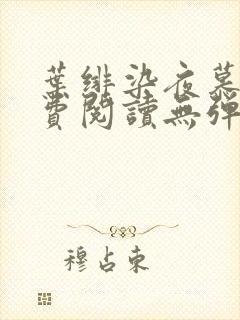 葉緋染夜慕
費閱讀無彈
穆占東